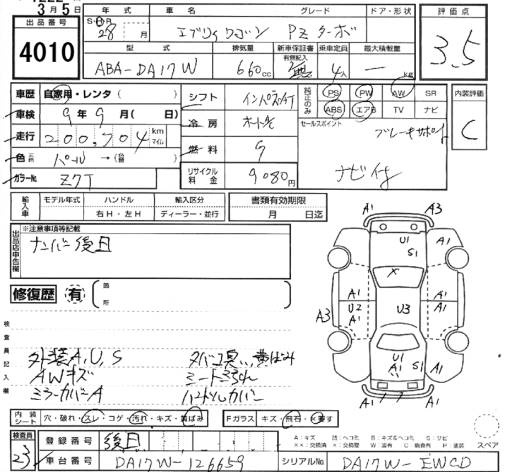 3月5日
出品番号
4010
年式 車名 グレード ドア・形状
28 月 エブリィワゴン PZターボ
評価点
3.5
型式 排気量 新車保証書 乗車定員 最大積載量
有無記入
ABA-DA17W 660cc 無 4人 — kg
車歴 自家用・レンタ( )
シフト インパネAT
純正のみ
PS PW AW SR
ABS エアB TV ナビ
内装評価
C
車検 9年9月( 日)
冷房 オートAC
セールスポイント
ブレーキサポート
走行 200,704 km マイル
燃料 G
ナビ付
色 パール →(替色)
カラーNo Z7T
リサイクル料金 9080円
輸入車 モデル年式 ハンドル 輸入区分
右H・左H ディーラー・並行
書類有効期限
月 日迄
出品店申告欄
※注意事項等記載
ナンバー後日
修復歴 有
箇所
A1 A3
A1 U1 A1
S1
X
A1 A1
A3 U2 U3
A1 A1
U1
A1 A1 S1 A1
A1 A3
検査員記入欄
外装A,U,S タバコ臭、黄ばみ
AWキズ シートヨゴレ
ミラーカバーA ハンドルカバー
内装 シート 穴・破れ・スレ・コゲ・汚れ・キズ・黄ばみ
Fガラス キズ・飛石・ヒビ
検査員
23
登録番号 後日
スペア
車台番号 DA17W-126659
シリアルNo DA17W-EWCD